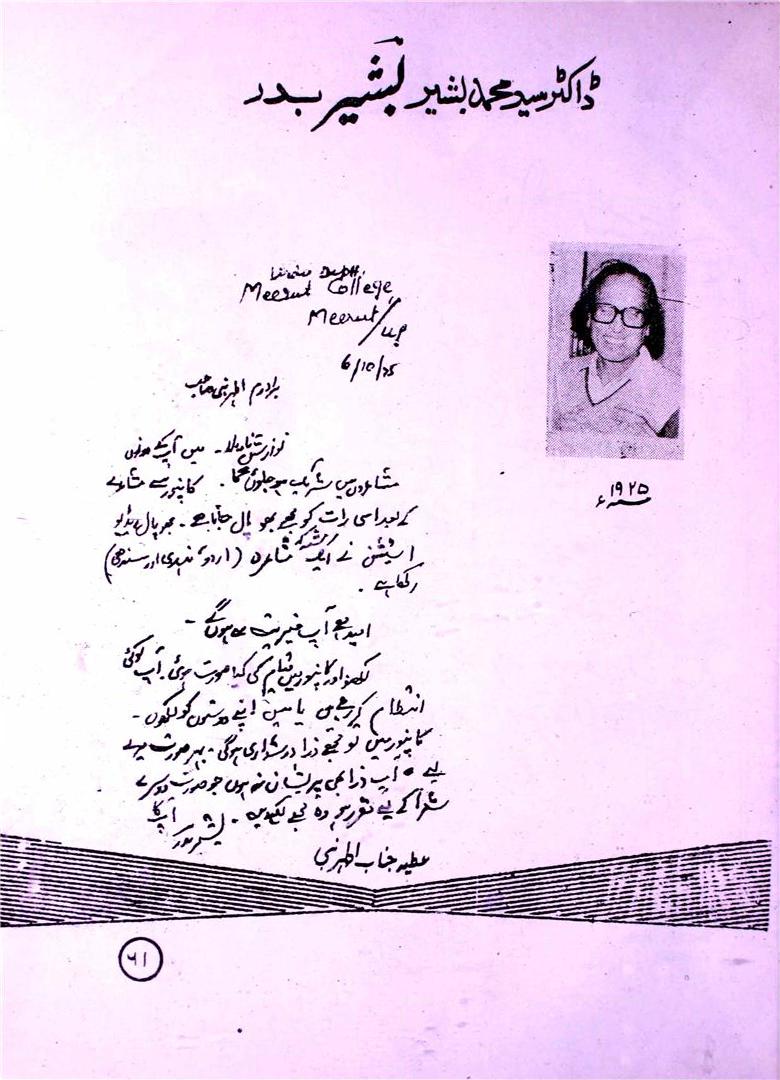 ڈاکٹر سید محمد بشیر بشیر بدر
Meerut College,
Meerut/UP
6/10/75
برادرم اظہر نبی صاحب
نوازش نامہ ملا۔ میں آپ کے دونوں
مشاعروں میں شریک ہو جاؤں گا۔ کانپور سے مشاعرے
کے بعد اسی رات کو مجھے بھوپال جانا ہے۔ بھوپال ریڈیو
اسٹیشن نے ایک مشاعرہ (اردو، ہندی اور سندھی)
رکھا ہے۔
امید ہے آپ خیریت سے ہوں گے۔
لکھنؤ اور کانپور میں قیام کی کیا صورت ہوگی۔ آپ کوئی
انتظام کر رہے ہیں یا میں اپنے دوستوں کو لکھوں۔
کانپور میں تو مجھے ذرا دشواری ہوگی۔ بہر صورت میرے
لیے آپ ذرا بھی پریشان نہ ہوں جو صورت دوسرے
شعرا کے لیے مقرر ہو وہ مجھے لکھ دیں۔
آپ کا
بشیر بدر
عطیہ جناب اظہر نبی
۱۹۲۵ء
۶۱